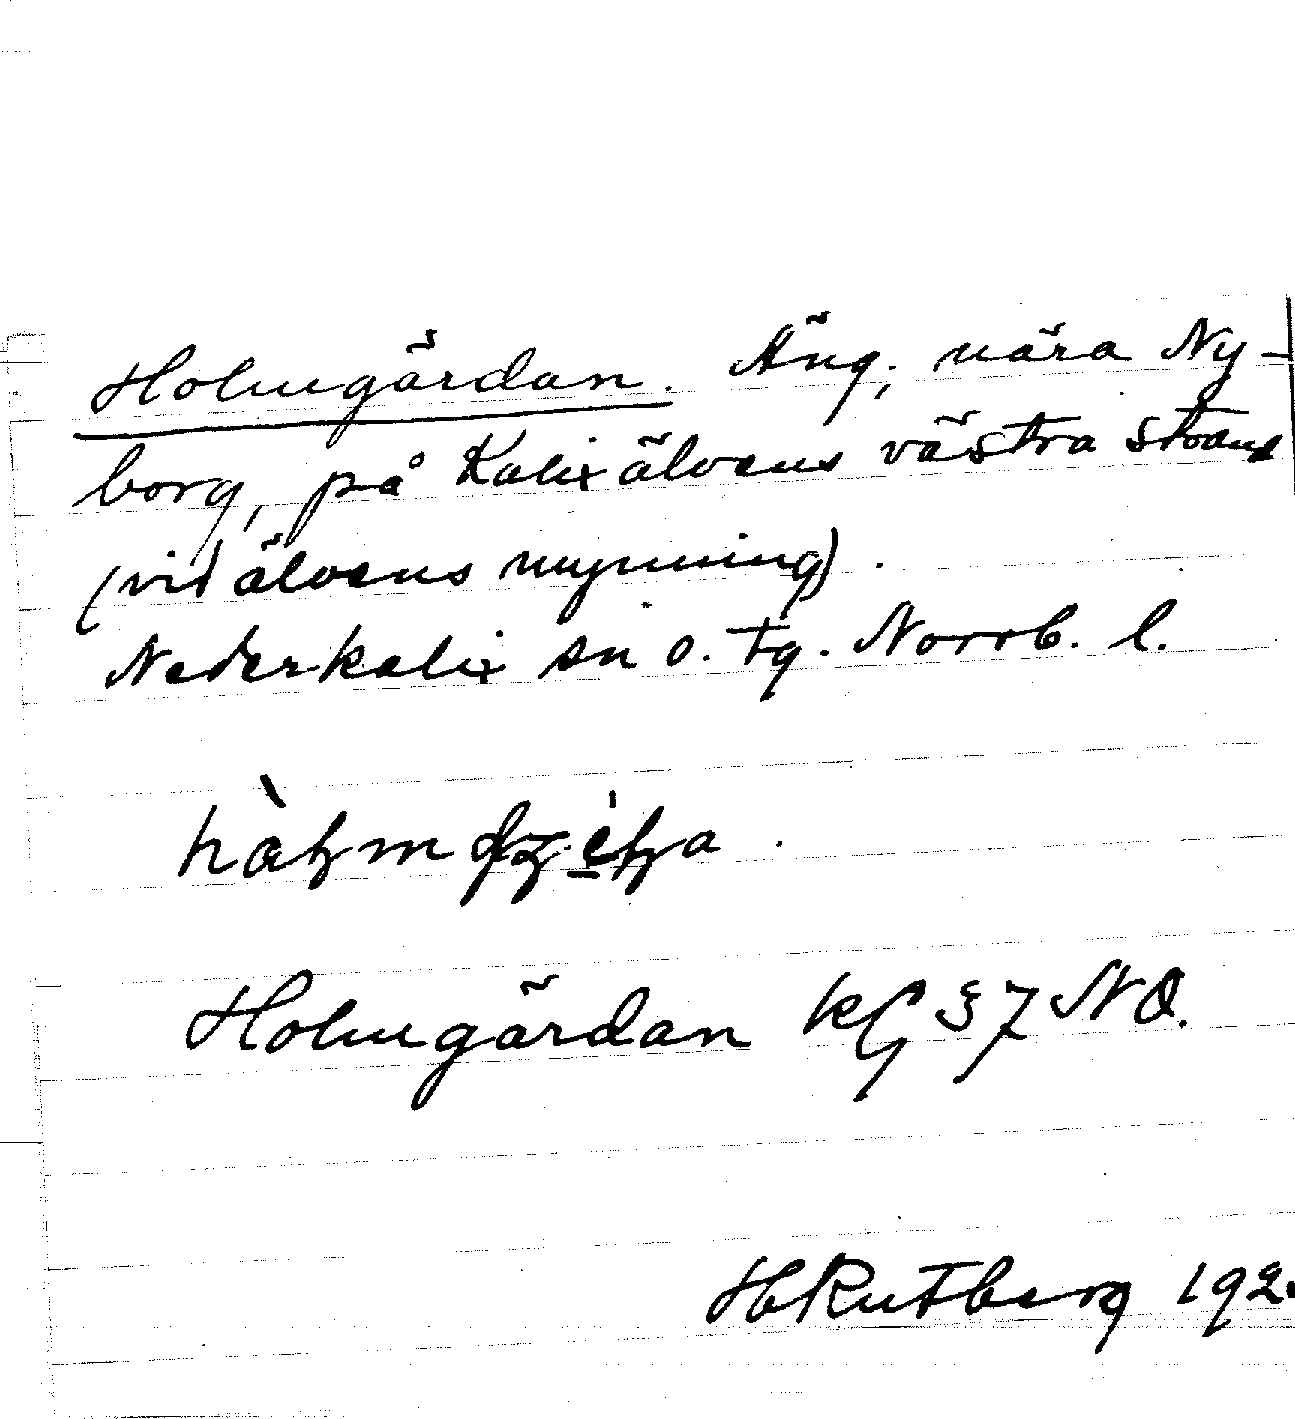 Holmgärdan. Äng, nära Ny-
borg, på Kalixälvens västra strand
(vid älvens mynning).
Nederkalix sn o. tg. Norrb. l.
Holmgärdan kf 37 NO.
HRutberg 192